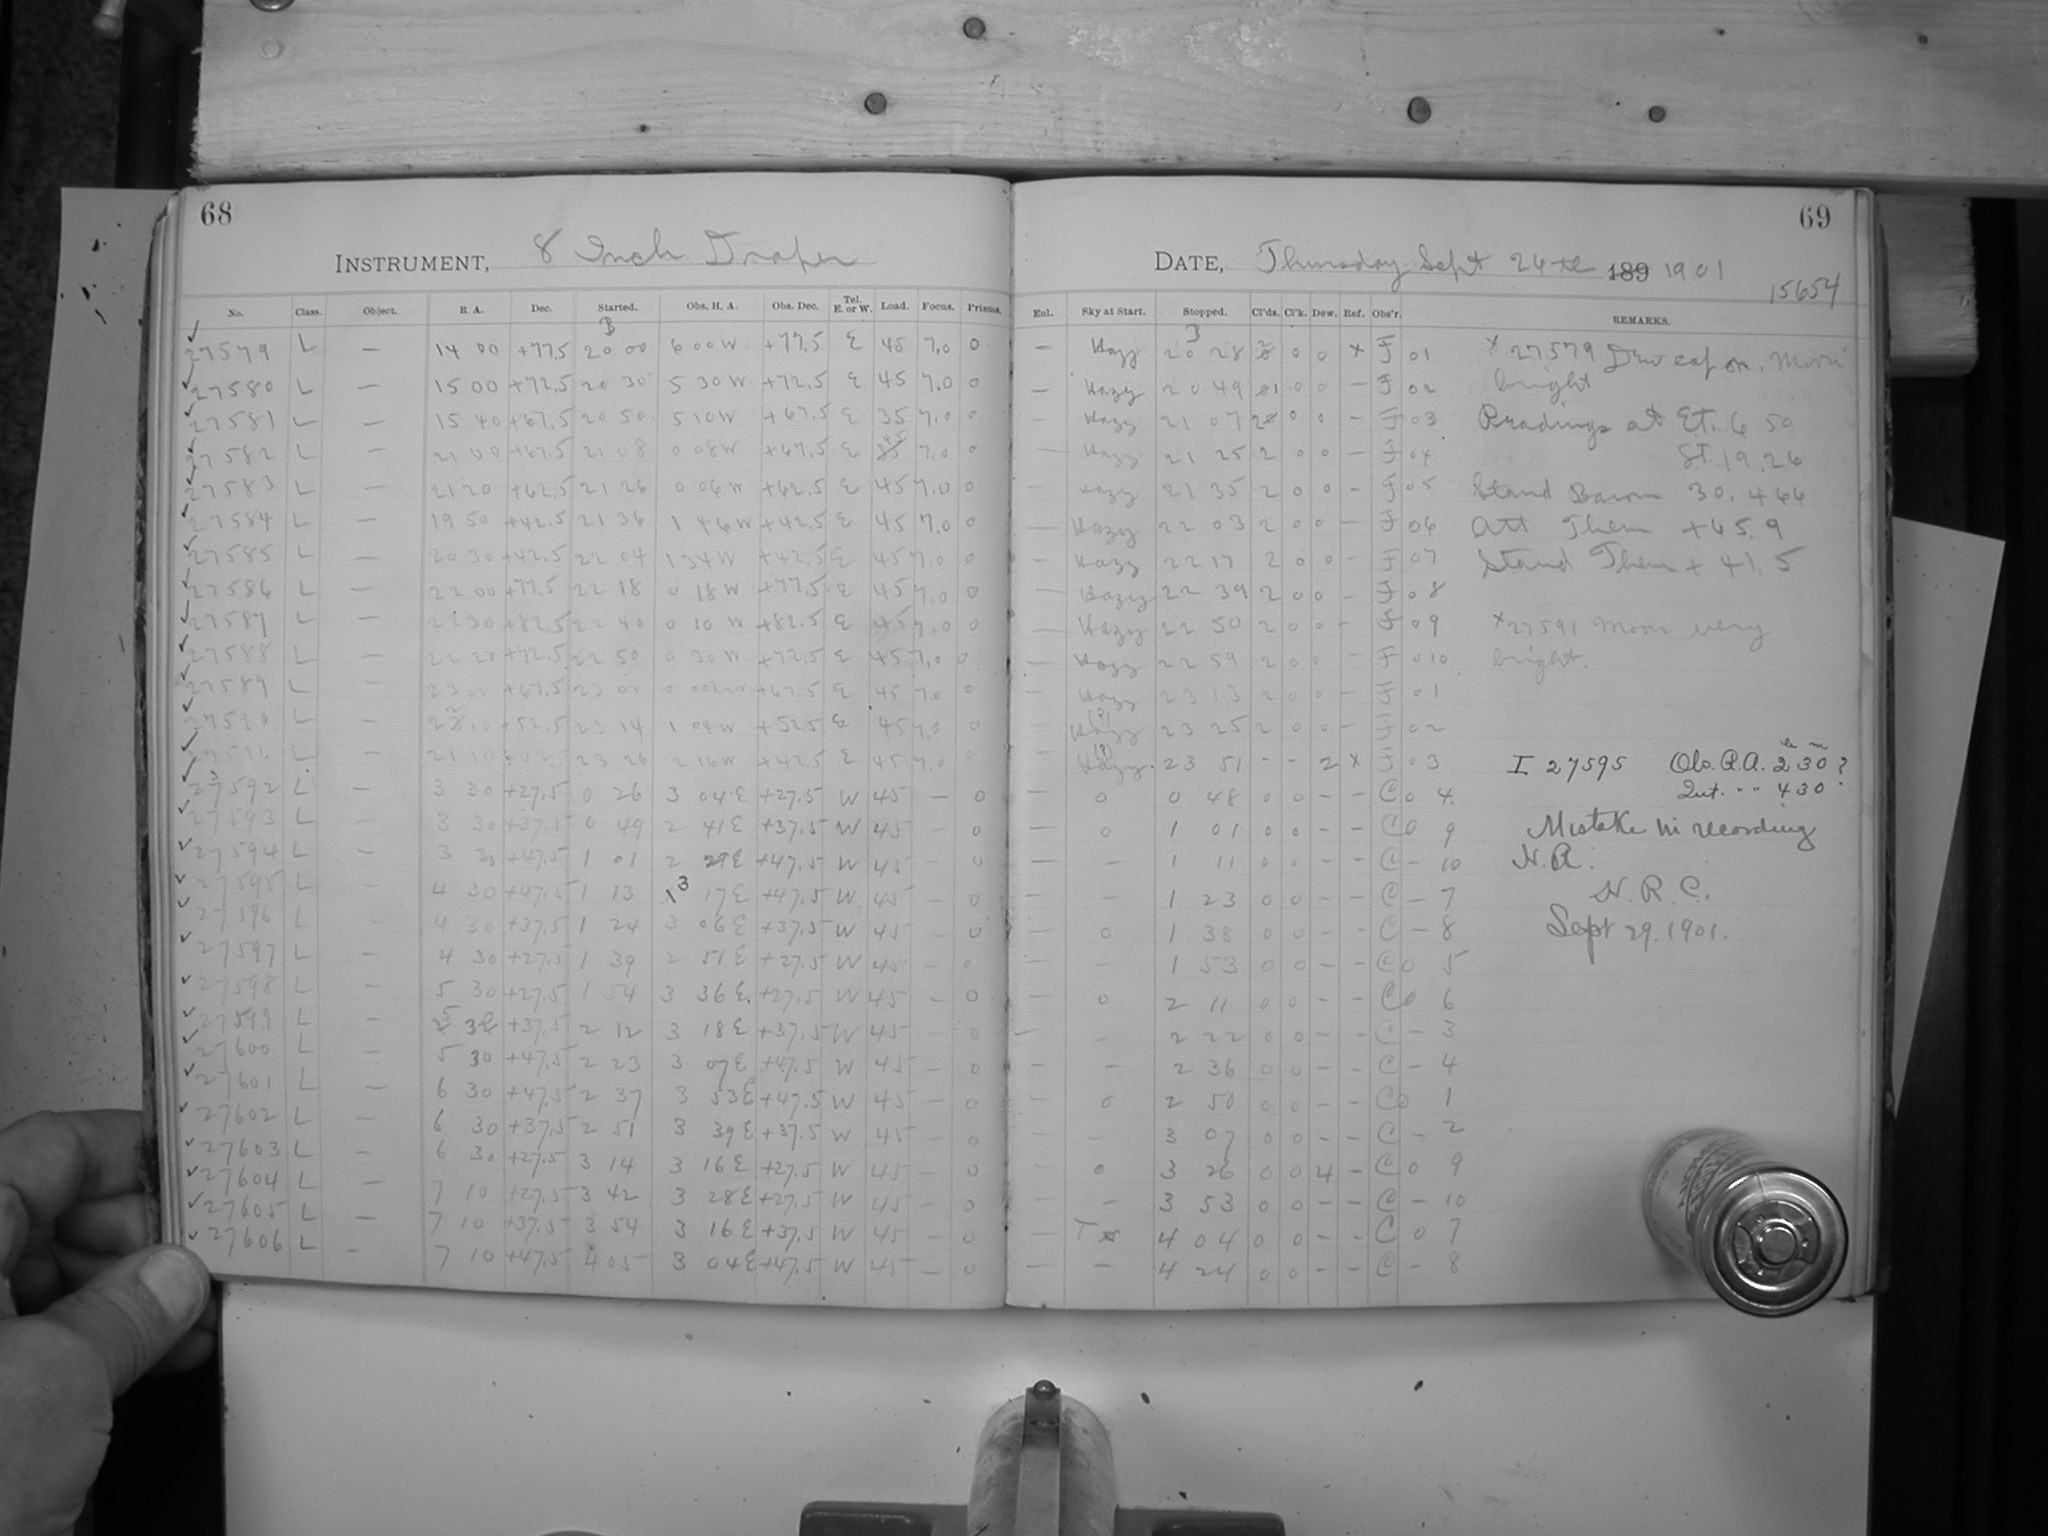 68
INSTRUMENT, 8 Inch Draper
No. Class. Object. R. A. Dec. Started. Obs. H. A. Obs. Dec. Tel. E. or W. Load. Focus. Prisms.
27579 L — 14 00 +77.5 20 00 6 00 W +77.5 E 45 7.0 0
27580 L — 15 00 +72.5 20 30 5 30 W +72.5 E 45 7.0 0
27581 L — 15 40 +67.5 20 50 5 10 W +67.5 E 35 7.0 0
27582 L — 21 00 +67.5 21 08 0 08 W +67.5 E 45 7.0 0
27583 L — 21 20 +62.5 21 26 0 06 W +62.5 E 45 7.0 0
27584 L — 19 50 +42.5 21 36 1 46 W +42.5 E 45 7.0 0
27585 L — 20 30 +42.5 22 04 1 34 W +42.5 E 45 7.0 0
27586 L — 22 00 +77.5 22 18 0 18 W +77.5 E 45 7.0 0
27587 L — 22 30 +82.5 22 40 0 10 W +82.5 E 45 7.0 0
27588 L — 22 20 +72.5 22 50 0 30 W +72.5 E 45 7.0 0
27589 L — 23 00 +67.5 23 00 0 00 W +67.5 E 45 7.0 0
27590 L — 22 10 +52.5 23 14 1 04 W +52.5 E 45 7.0 0
L — 21 10 +42.5 23 26 2 16 W +42.5 E 45 7.0 0
27592 L — 3 30 +27.5 0 26 3 04 E +27.5 W 45 — 0
27593 L — 3 30 +37.5 0 49 2 41 E +37.5 W 45 — 0
27594 L — 3 30 +47.5 1 01 2 29 E +47.5 W 45 — 0
27595 L — 4 30 +47.5 1 13 3 17 E +47.5 W 45 — 0
27596 L — 4 30 +37.5 1 24 3 06 E +37.5 W 45 — 0
27597 L — 4 30 +27.5 1 39 2 51 E +27.5 W 45 — 0
27598 L — 5 30 +27.5 1 54 3 36 E +27.5 W 45 — 0
27599 L — 5 30 +37.5 2 12 3 18 E +37.5 W 45 — 0
27600 L — 5 30 +47.5 2 23 3 07 E +47.5 W 45 — 0
27601 L — 6 30 +47.5 2 37 3 53 E +47.5 W 45 — 0
27602 L — 6 30 +37.5 2 51 3 39 E +37.5 W 45 — 0
27603 L — 6 30 +27.5 3 14 3 16 E +27.5 W 45 — 0
27604 L — 7 10 +27.5 3 42 3 28 E +27.5 W 45 — 0
27605 L — 7 10 +37.5 3 54 3 16 E +37.5 W 45 — 0
27606 L — 7 10 +47.5 4 05 3 04 E +47.5 W 45 — 0
69
DATE, Thursday Sept 26th 189 1901
15654
Enl. Sky at Start. Stopped. Cl'ds. Cl'k. Dew. Ref. Obs'r. REMARKS.
— Hazy 20 28 0 0 x F 01
— Hazy 20 49 01 0 0 — F 02
— Hazy 21 07 0 0 — F 03
— Hazy 21 25 2 0 0 — F 04
— Hazy 21 35 2 0 0 — F 05
— Hazy 22 03 2 0 0 — F 06
— Hazy 22 17 2 0 0 — F 07
— Hazy 22 39 2 0 0 — F 08
— Hazy 22 50 2 0 0 — F 09
— Hazy 22 59 2 0 0 — F 010
— Hazy 23 13 2 0 0 — F 01
— Hazy (?) 23 25 2 0 0 — F 02
— Hazy (?) 23 51 - - 2 x F 03
— 0 0 48 0 0 — — C 0 4
— 0 1 01 0 0 — — C 0 9
— — 1 11 0 0 — — C — 10
— — 1 23 0 0 — — C — 7
— 0 1 38 0 0 — — C — 8
— — 1 53 0 0 — — C 0 5
— 0 2 11 0 0 — — C 0 6
— — 2 22 0 0 — — C — 3
— — 2 36 0 0 — — C — 4
— 0 2 50 0 0 — — C 0 1
— — 3 07 0 0 — — C — 2
— 0 3 26 0 0 4 — C 0 9
— — 3 53 0 0 — — C — 10
— T 4 04 0 0 — — C 0 7
— — 4 24 0 0 — — C — 8
x 27579 Dew cap on. Moon
bright
Readings at Et. 6 50
St. 19.26
Stand Barom 30.466
Att Them +65.9
Stand Them + 41.5
x 27591 Moon very
bright.
I 27595 Obs. R.A. 2h 30m?
Int. " " 4 30
Mistake in recording
H. A.
H. R. C.
Sept 29. 1901.